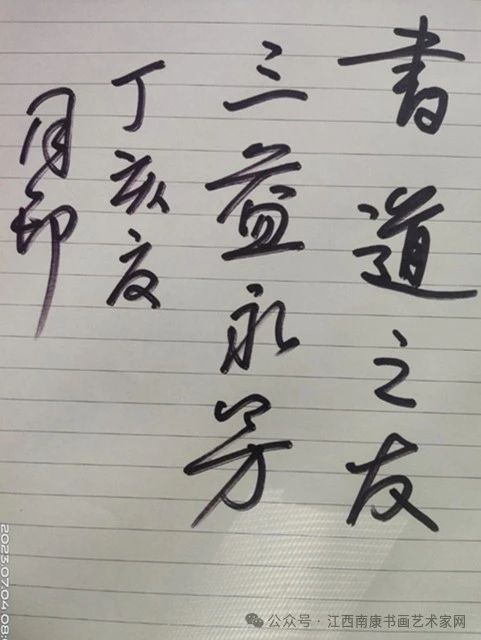 書道之友
三益永芳
丁亥夏
印
2023.07.04 08:
公众号 · 江西南康书画艺术家网